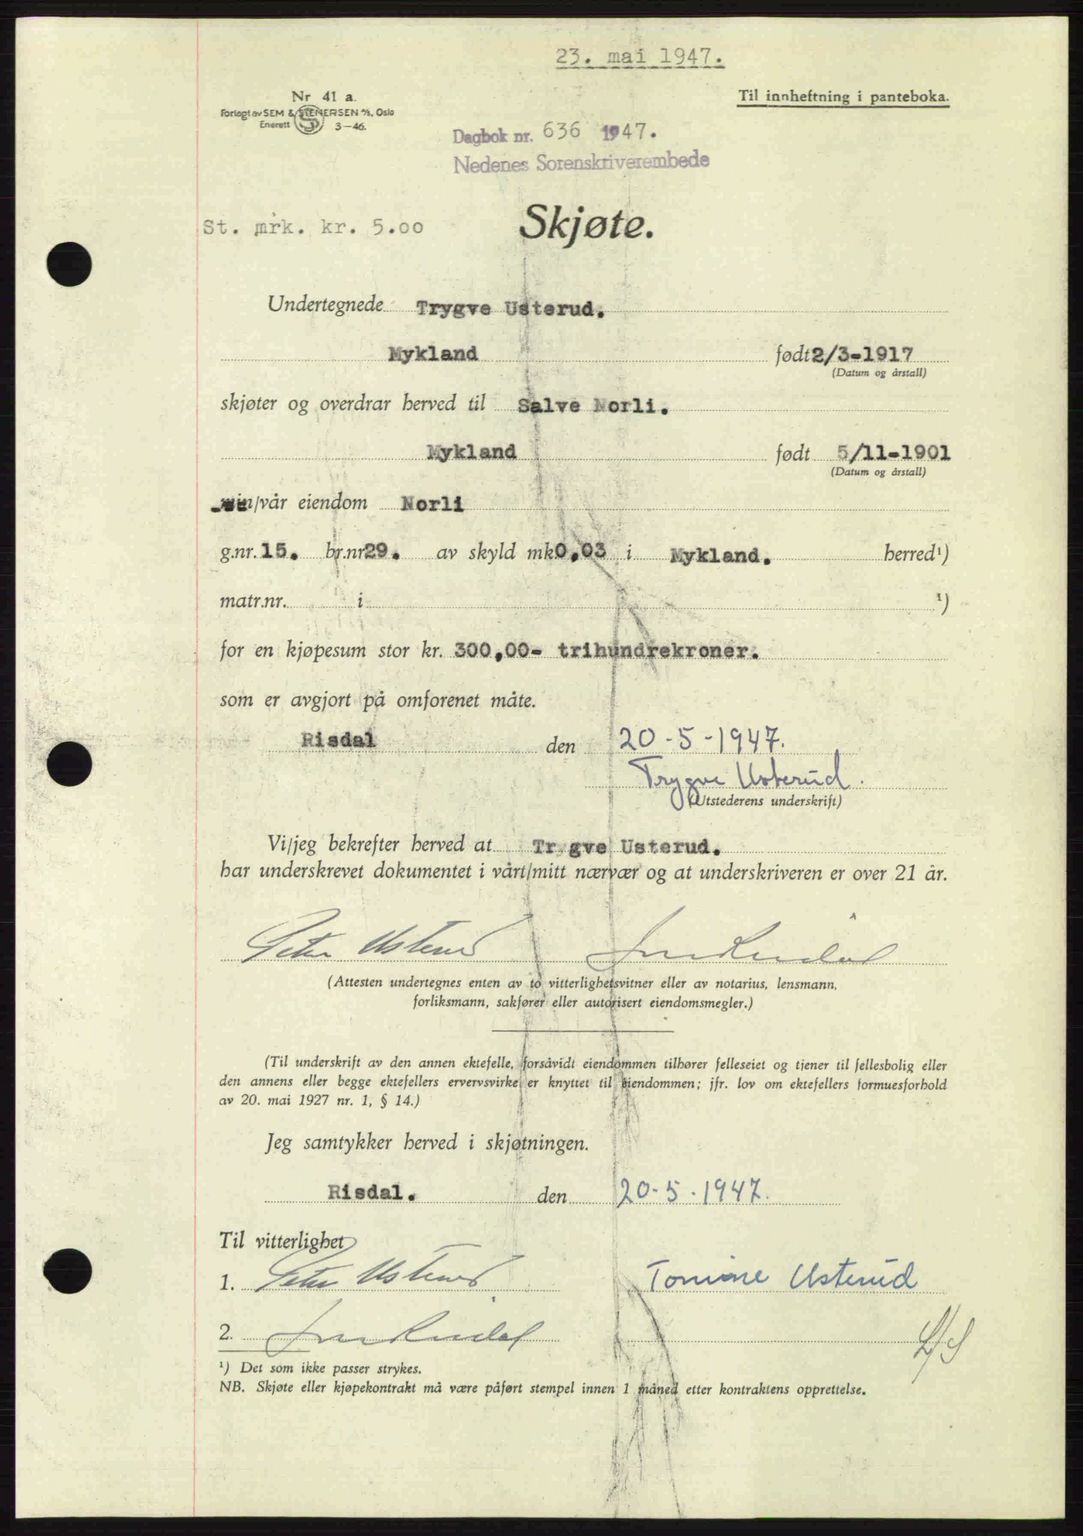 23. mai 1947.
Nr 41 a.
Til innheftning i panteboka.
Forlagt av SEM & STENERSEN A/S, Oslo
Enerett 3-46.
Dagbok nr. 636 1947.
Nedenes Sorenskriverembede
St. mrk. kr. 5.00
Skjøte.
Undertegnede Trygve Usterud.
Mykland født 2/3-1917
(Datum og årstall)
skjøter og overdrar herved til Salve Norli.
Mykland født 5/11-1901
(Datum og årstall)
min/vår eiendom Norli
g.nr. 15. br.nr 29. av skyld mk 0,03 i Mykland. herred¹)
matr.nr. i ¹)
for en kjøpesum stor kr. 300,00- trihundrekroner.
som er avgjort på omforenet måte.
Risdal den 20-5-1947.
Trygve Usterud.
(Utstederens underskrift)
Vi/jeg bekrefter herved at Tr gve Usterud.
har underskrevet dokumentet i vårt/mitt nærvær og at underskriveren er over 21 år.
Peter Usterud
(Attesten undertegnes enten av to vitterlighetsvitner eller av notarius, lensmann,
forliksmann, sakfører eller autorisert eiendomsmegler.)
(Til underskrift av den annen ektefelle, forsåvidt eiendommen tilhører felleseiet og tjener til fellesbolig eller
den annens eller begge ektefellers ervervsvirke er knyttet til eiendommen; jfr. lov om ektefellers formuesforhold
av 20. mai 1927 nr. 1, § 14.)
Jeg samtykker herved i skjøtningen.
Risdal. den 20-5-1947.
Til vitterlighet
1. Peter Usterud Tomine Usterud
2.
¹) Det som ikke passer strykes.
NB. Skjøte eller kjøpekontrakt må være påført stempel innen 1 måned etter kontraktens opprettelse.